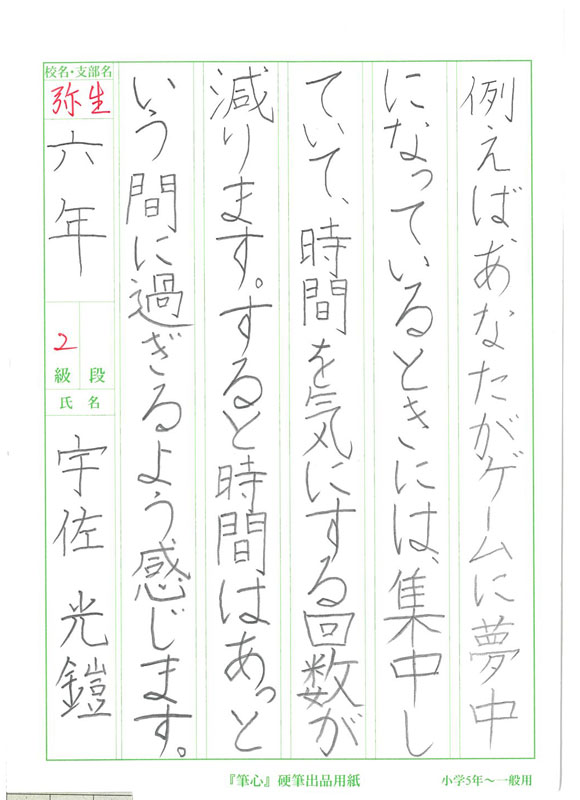 例えば、あなたがゲームに夢中
になっているときには、集中し
ていて、時間を気にする回数が
減ります。すると時間はあっと
いう間に過ぎるよう感じます。
校名・支部名
弥生
六年
2
級 段
氏 名
宇佐 光鎧
『筆心』硬筆出品用紙
小学5年～一般用